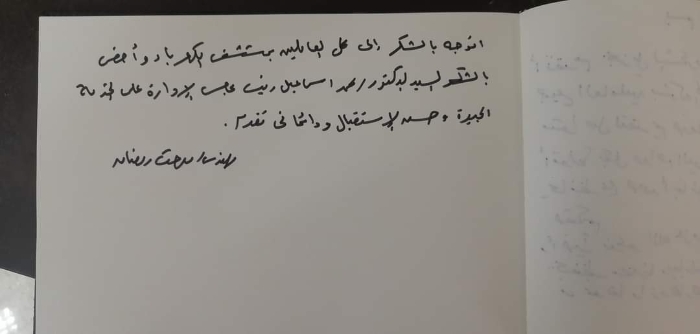 اتوجه بالشكر إلى كل العاملين بمستشفى الكهرباء وأخص
بالشكر السيد الدكتور / محمد اسماعيل رئيس مجلس الإدارة على الخدمات
الجيدة وحسن الإستقبال ودائما فى تقدم .
مهندس / مدحت رمضان